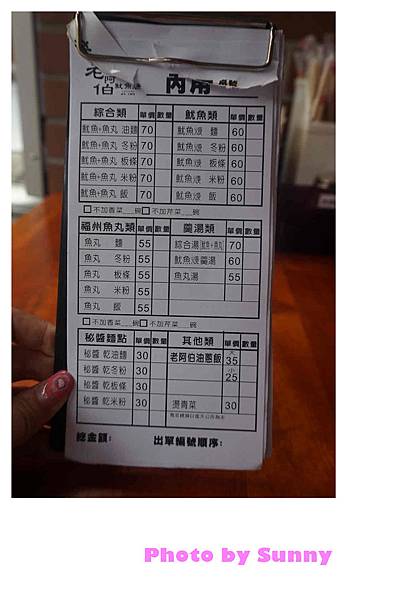 老阿伯 魷魚焿 內用 桌號
綜合類 單價 數量 魷魚類 單價 數量
魷魚+魚丸 油麵 70 魷魚焿 麵 60
魷魚+魚丸 冬粉 70 魷魚焿 冬粉 60
魷魚+魚丸 板條 70 魷魚焿 板條 60
魷魚+魚丸 米粉 70 魷魚焿 米粉 60
魷魚+魚丸 飯 70 魷魚焿 飯 60
□不加香菜__碗□不加芹菜__碗
福州魚丸類 單價 數量 羹湯類 單價 數量
魚丸 麵 55 綜合湯(魷魚+魚丸) 70
魚丸 冬粉 55 魷魚焿羹湯 60
魚丸 板條 55 魚丸湯 55
魚丸 米粉 55
魚丸 飯 55
□不加香菜__碗□不加芹菜__碗
秘醬麵點 單價 數量 其他類 單價 數量
秘醬 乾油麵 30 老阿伯油蔥飯 大 35
秘醬 乾冬粉 30 小 25
秘醬 乾板條 30
秘醬 乾米粉 30 燙青菜 30
總金額: 出單編號順序:
Photo by Sunny